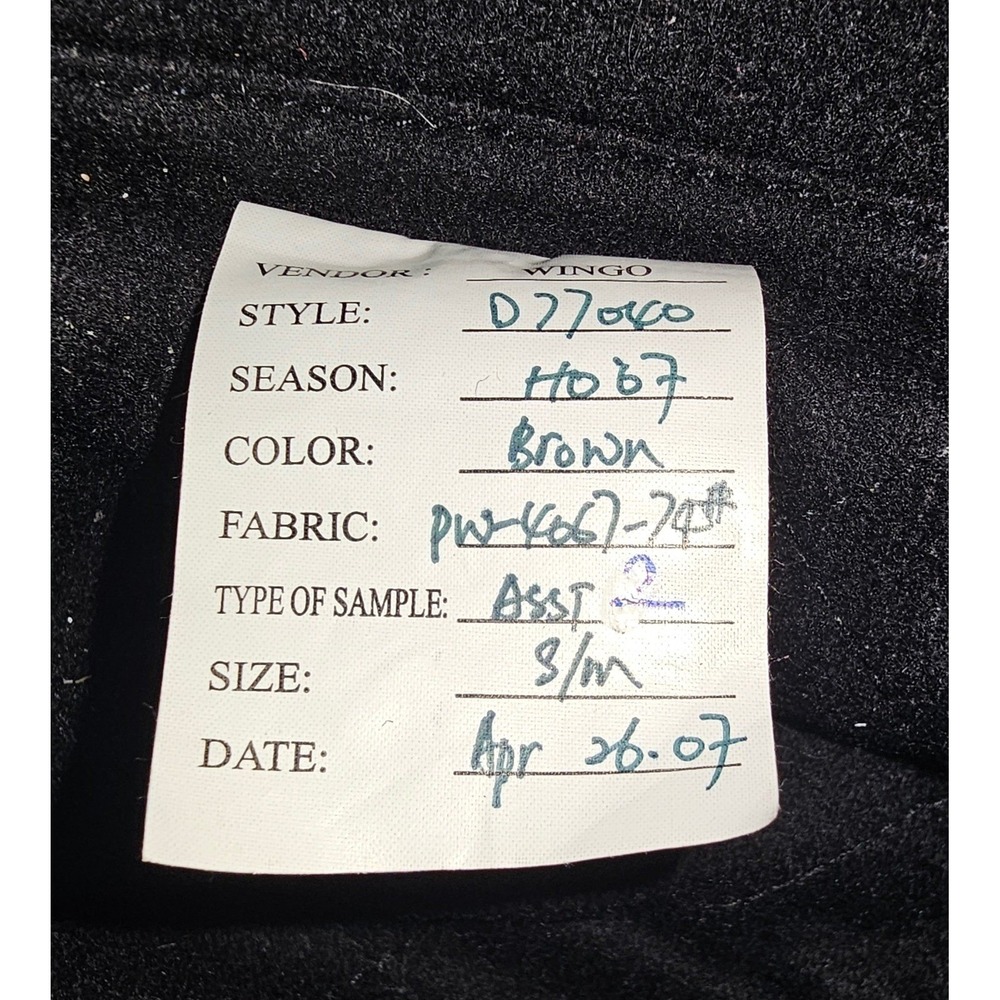 VENDOR: WINGO
STYLE: D77040
SEASON: HO 07
COLOR: Brown
FABRIC: PW-4067-74#
TYPE OF SAMPLE: ASST 2
SIZE: S/M
DATE: Apr 26.07